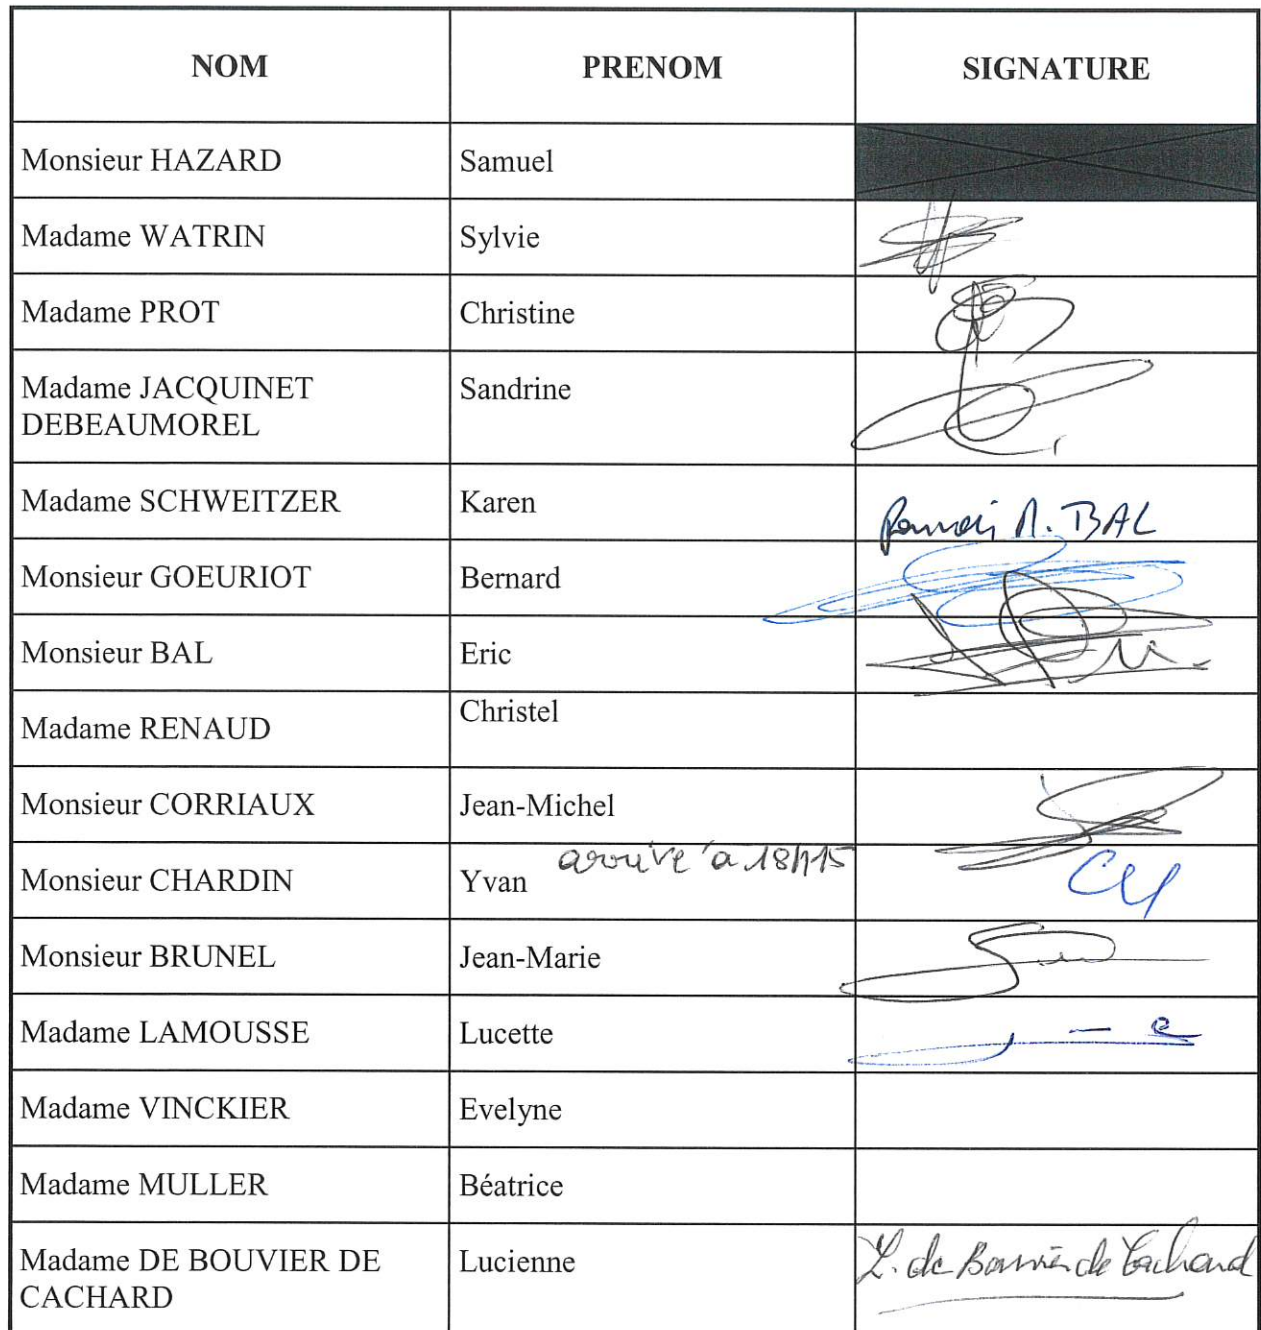 NOM PRENOM SIGNATURE
Monsieur HAZARD Samuel
Madame WATRIN Sylvie
Madame PROT Christine
Madame JACQUINET Sandrine
DEBEAUMOREL
Madame SCHWEITZER Karen
Pouvoir M. BAL
Monsieur GOEURIOT Bernard
Monsieur BAL Eric
Madame RENAUD Christel
Monsieur CORRIAUX Jean-Michel
arrivé à 18h15
Monsieur CHARDIN Yvan
Monsieur BRUNEL Jean-Marie
Madame LAMOUSSE Lucette
Madame VINCKIER Evelyne
Madame MULLER Béatrice
Madame DE BOUVIER DE Lucienne L. de Bouvier de Cachard
CACHARD